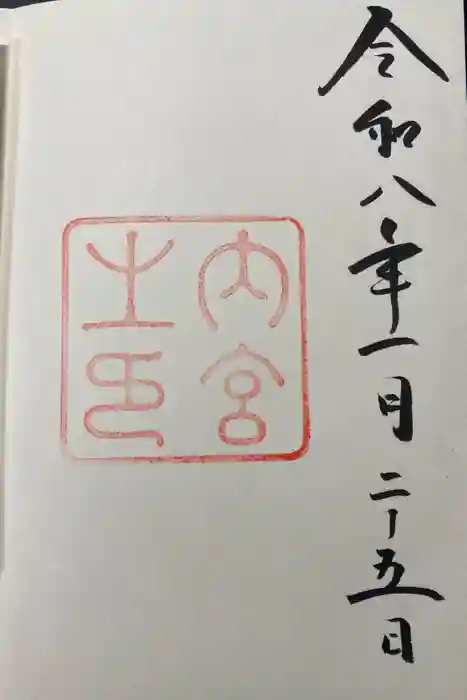 令和八年一月二十五日
内宮
之印